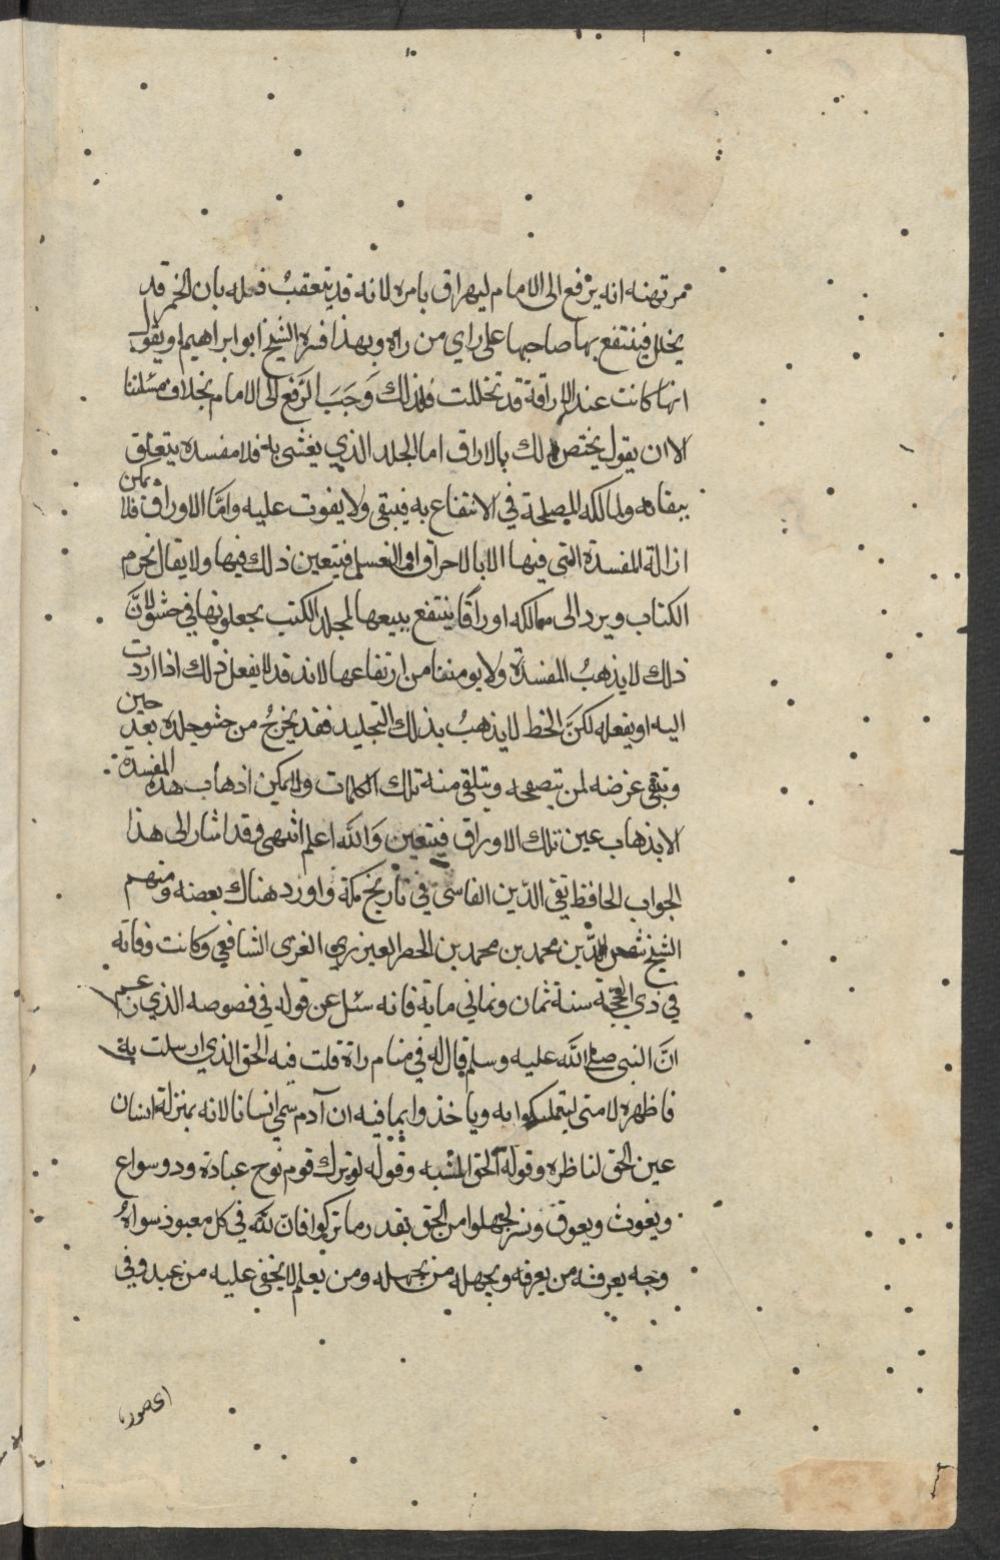 ممر تهنه انه يرفع الى الامام ليهراق بامره لانه قد يتعقب فعله بان الخمر قد
يخلل فينتفع بها صاحبها على راي من راه وبهذا فسره الشيخ ابو ابراهيم او يقول
انها كانت عند الاراقة قد تخللت فلذلك وَجَبَ الرَفع الى الامام بخلاف مسئلتنا
الا ان يقول يختص ذلك بالاراق اما الجلد الذي يغشى به فلا مفسده يتعلق
ببقاه ولمالكه المصلحة في الانتفاع به فيبقى ولا يفوت عليه وامَّا الاوراق فلا يمكن
ازالة المفسدة التي فيها الا بالاحراق او الغسل فيتعين ذلك فيها ولا يقال نخرم
الكتاب ويرد الى مالكه اوراقًا ينتفع ببيعها لمجلد الكتب يجعلونها في حشو لانَّ
ذلك لا يذهبُ المفسدة ولا يومننا من ارتفاعها لانه قد لا يفعل ذلك اذا اردت
اليه او يفعله لكنَّ الخط لا يذهبُ بذلك التجليد فقد يخرجُ من حشو جلده بعد حين
ويبقى عرضه لمن يتصفحه ويتلقى منه تلك الكلمات ولا يمكن اذهاب هذه المفسدة
الا بذهاب عين تلك الاوراق فيتعين وَالله اعلم انتهى وقد اشار الى هذا
الجواب الحافظ تقي الدّين الفاسي في تاريخ مكة واورد هناك بعضه ومنهم
الشيخ شمس الدّين محمد بن محمد بن الخضر العيزري الغزى الشافعي وكانت وفاته
في ذي الحجّة سنة ثمان وثماني ماية فانه سئل عن قوله في فصوصه الذي زعم
انَّ النبي صلى الله عليه وسلم قال له في منام راه قلت فيه الحق الذي ارسلت به
فاظهره لامتى ليتمسكوا به وياخذوا بما فيه ان آدم سمي انسانا لانه بمنزلة انسان
عين الحق لناظره وقوله الحق المشبه وقوله لو ترك قوم نوح عبادة ود وسواع
ويغوث ويعوق ونسر لجهلوا من الحق بقدر ما تركوا فان لله في كل معبود سواهُ
وجه يعرفه من يعرفه ويجهله من يجهله ومن يعلم لا يخفى عليه من عبد وفي